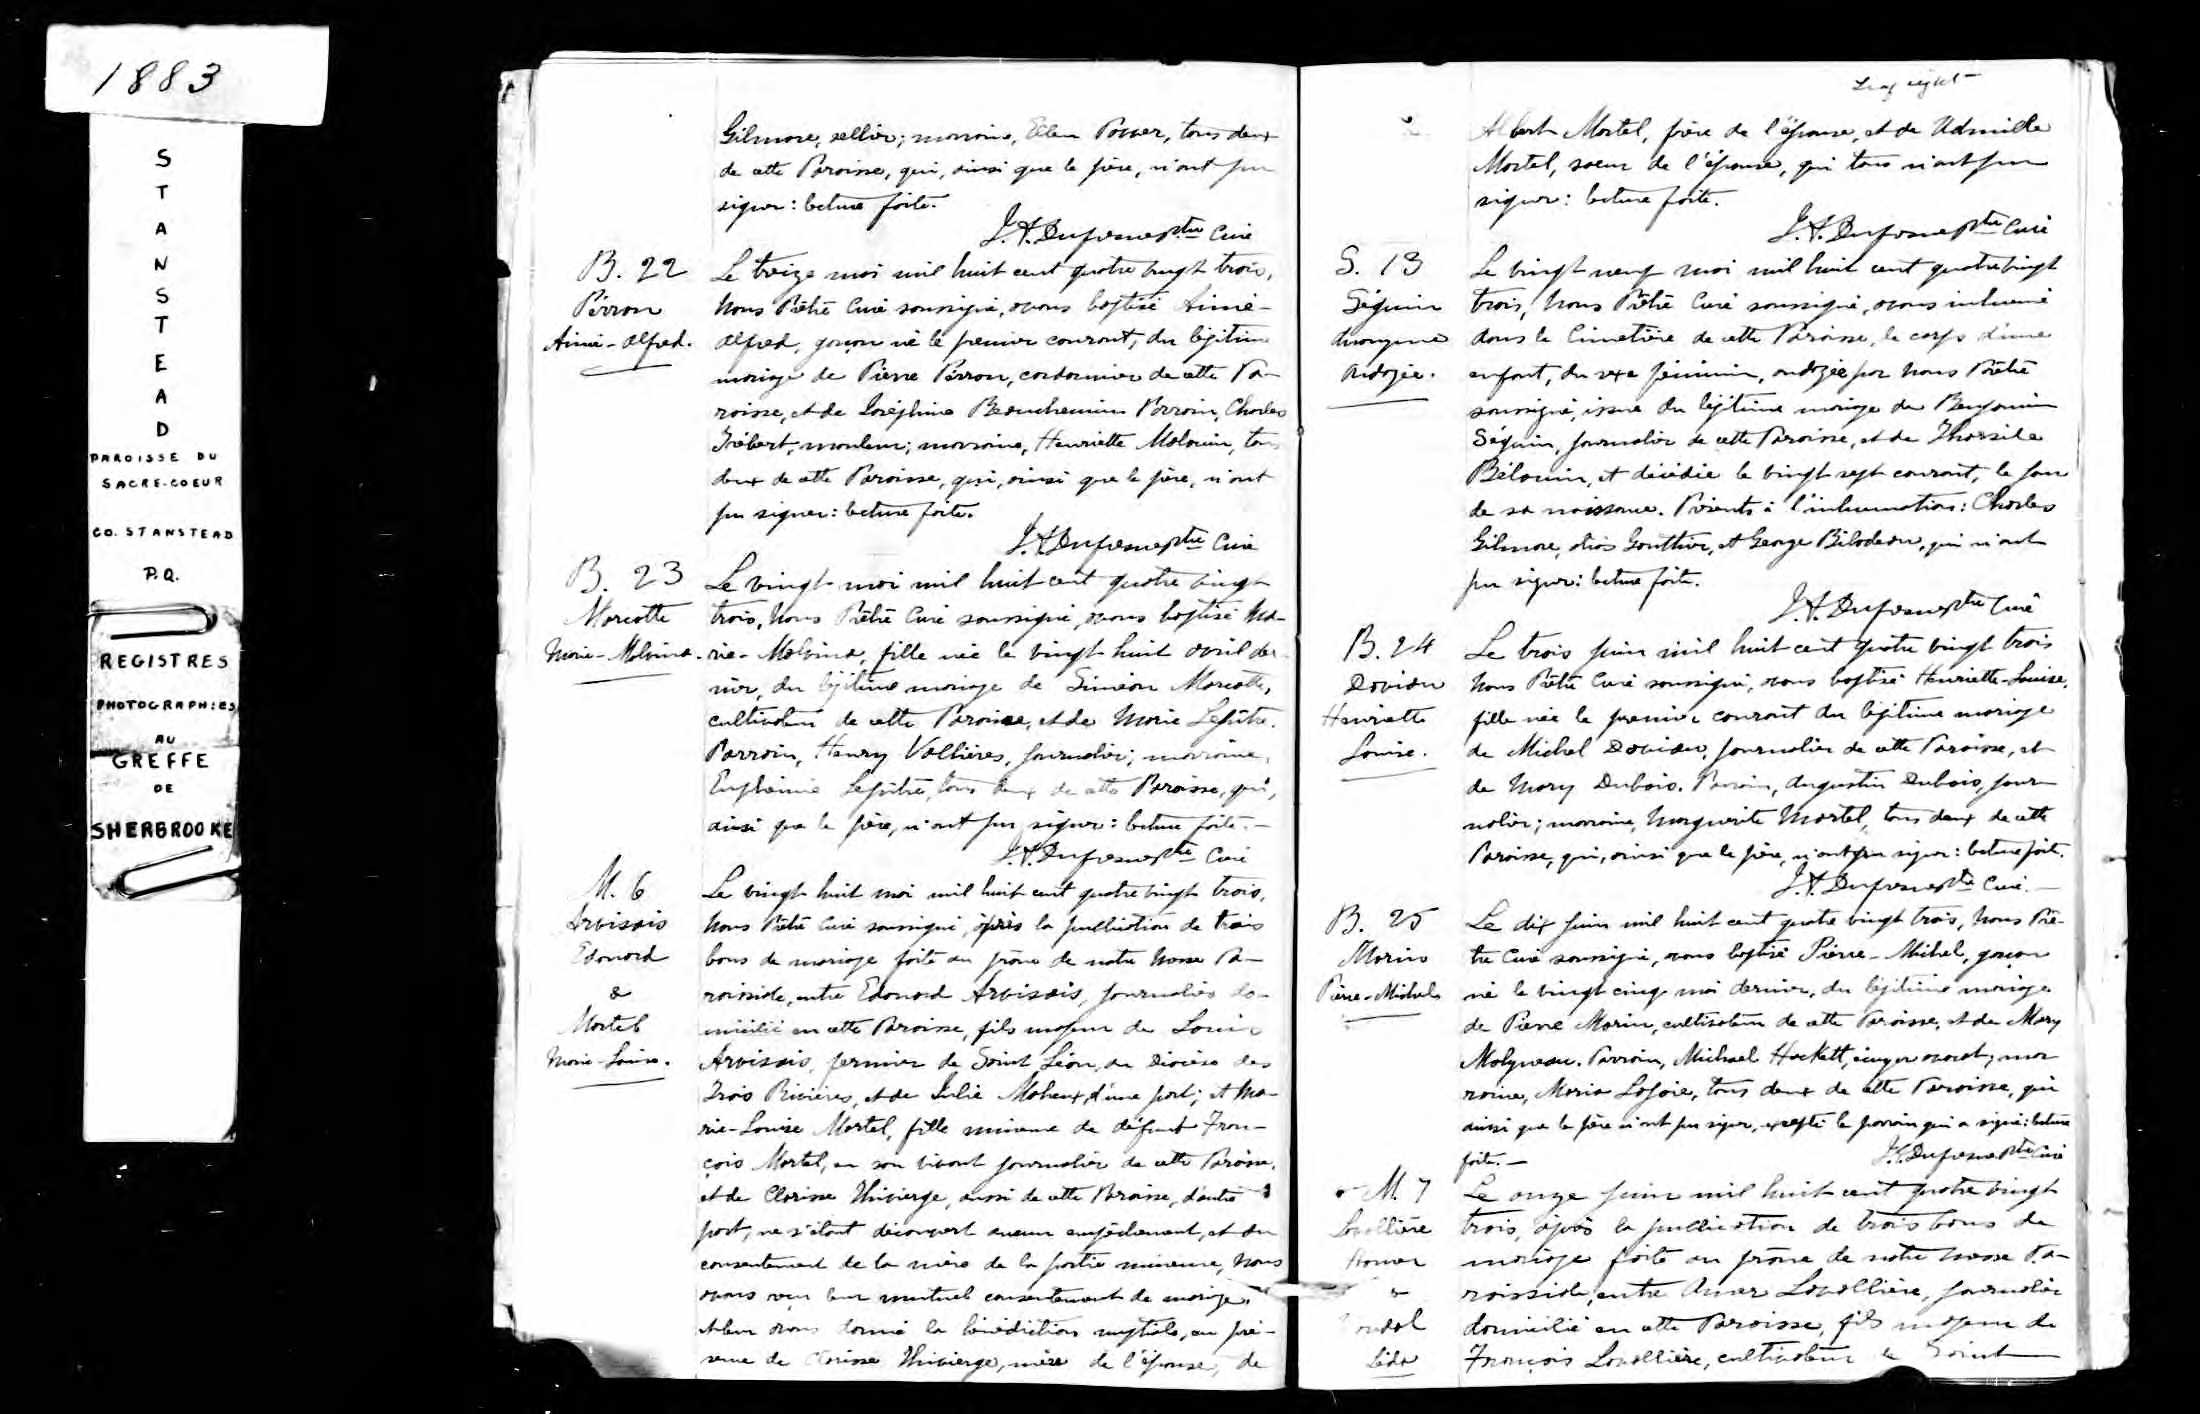 1883
S
T
A
N
S
T
E
A
D
PAROISSE DU
SACRE-COEUR
CO. STANSTEAD
P.Q.
REGISTRES
PHOTOGRAPHIES
AU
GREFFE
DE
SHERBROOKE
Gilmore, sellier; marraine, Ellen Power, tous deux
de cette Paroisse, qui, ainsi que le père, n'ont pu
signer: lecture faite.
J.A. Dufresne Ptre Curé
B. 22
Perron
Aimé-Alfred.
Le treize mai mil huit cent quatre vingt trois,
Nous Prêtre Curé soussigné, avons baptisé Aimé-
Alfred, garçon né le premier courant, du légitime
mariage de Pierre Perron, cordonnier de cette Pa-
roisse, et de Joséphine Beauchemin. Parrain, Charles
Hébert, mouleur; marraine, Henriette Malouin, tous
deux de cette Paroisse, qui, ainsi que le père, n'ont
pu signer: lecture faite.
J.A. Dufresne Ptre Curé
B. 23
Marcotte
Marie-Malvina.
Le vingt mai mil huit cent quatre vingt
trois, Nous Prêtre Curé soussigné, avons baptisé Ma-
rie-Malvina, fille née le vingt huit avril der-
nier, du légitime mariage de Siméon Marcotte,
cultivateur de cette Paroisse, et de Marie Lefèbre.
Parrain, Henry Vallières, journalier; marraine,
Euphémie Lefèbre, tous deux de cette Paroisse, qui,
ainsi que le père, n'ont pu signer: lecture faite.—
J.A. Dufresne Ptre Curé
M. 6
Arvisais
Edouard
&
Martel
Marie-Louise.
Le vingt huit mai mil huit cent quatre vingt trois,
Nous Prêtre Curé soussigné, après la publication de trois
bans de mariage faite au prône de notre Messe Pa-
roissiale, entre Edouard Arvisais, journalier do-
micilié en cette Paroisse, fils majeur de Louis
Arvisais, fermier de Saint Léon, au Diocèse des
Trois Rivières, et de Julie Maheux, d'une part; et Ma-
rie-Louise Martel, fille mineure de défunt Fran-
çois Martel, en son vivant journalier de cette Paroisse,
et de Clarisse Thivierge, aussi de cette Paroisse, d'autre
part, ne s'étant découvert aucun empêchement, et du
consentement de la mère de la partie mineure, Nous
avons reçu leur mutuel consentement de mariage,
et leur avons donné la bénédiction nuptiale, en pré-
sence de Clarisse Thivierge, mère de l'épouse, de
Albert Martel, frère de l'épouse, et de
Martel, soeur de l'épouse, qui tous n'ont pu
signer: lecture faite.
J.A. Dufresne Ptre Curé
S. 13
Séguin
Anonyme
Ondoyée.
Le vingt neuf mai mil huit cent quatre vingt
trois, Nous Prêtre Curé soussigné, avons inhumé
dans le Cimetière de cette Paroisse, le corps d'une
enfant, du sexe féminin, ondoyée par Nous Prêtre
soussigné, issue du légitime mariage de Benjamin
Séguin, journalier de cette Paroisse, et de Tharsile
Béloin, et décédée le vingt sept courant, le jour
de sa naissance. Présents à l'inhumation: Charles
Gilmore, alias Gouthier, et George Bilodeau, qui n'ont
pu signer: lecture faite.
J.A. Dufresne Ptre Curé
B. 24
Davian
Henriette
Louise.
Le trois juin mil huit cent quatre vingt trois
Nous Prêtre Curé soussigné, avons baptisé Henriette-Louise,
fille née le premier courant du légitime mariage
de Michel Davian, journalier de cette Paroisse, et
de Mary Dubois. Parrain, Augustin Dubois, jour-
nalier; marraine, Marguerite Martel, tous deux de cette
Paroisse, qui, ainsi que le père, n'ont pu signer: lecture faite.
J.A. Dufresne Ptre Curé.—
B. 25
Morin
Pierre-Michel
Le dix juin mil huit cent quatre vingt trois, Nous Prê-
tre Curé soussigné, avons baptisé Pierre-Michel, garçon
né le vingt cinq mai dernier, du légitime mariage
de Pierre Morin, cultivateur de cette Paroisse, et de Mary
Molyneau. Parrain, Michael Hackett, écuyer avocat; mar
raine, Maria Lajoie, tous deux de cette Paroisse, qui
ainsi que le père n'ont pu signer, excepté le parrain qui a signé: lecture
faite.—
J.A. Dufresne Ptre Curé
M. 7
Lavallière
&
Léda
Le onze juin mil huit cent quatre vingt
trois, après la publication de trois bans de
mariage faite au prône de notre Messe Pa-
roissiale, entre Lavallière, journalier
domicilié en cette Paroisse, fils majeur de
François Lavallière, cultivateur de Saint